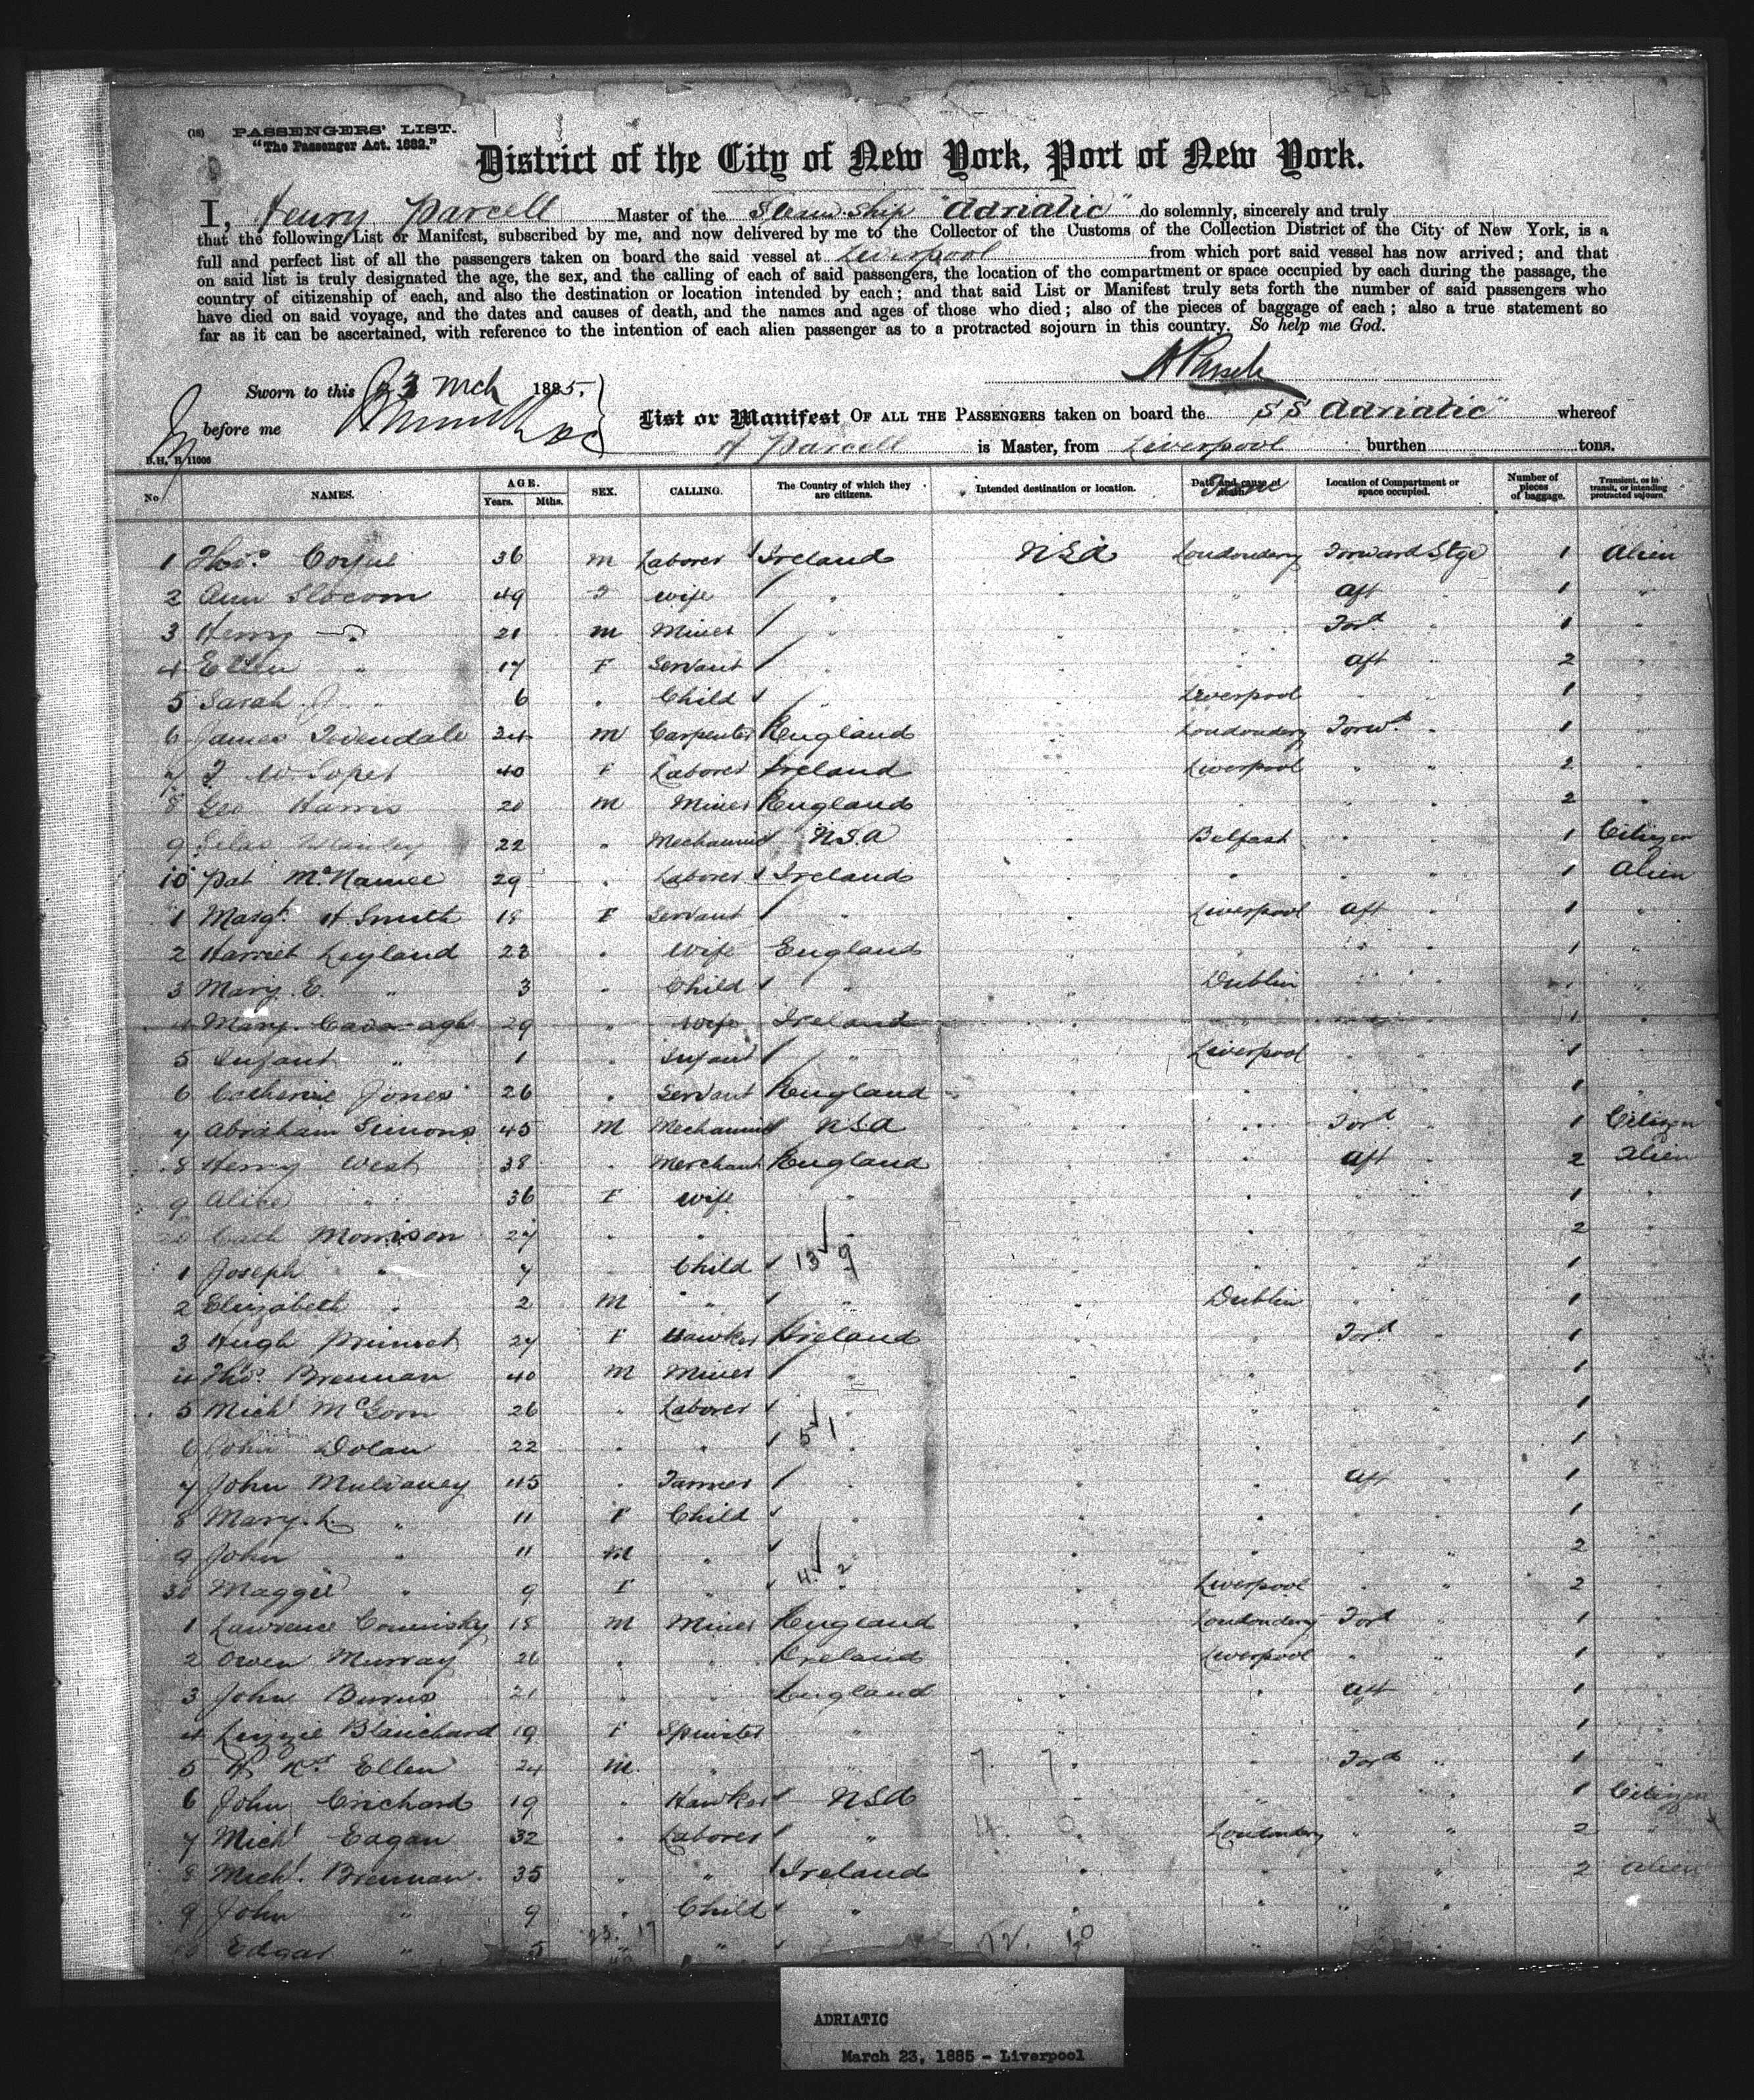 (18) PASSENGERS' LIST.
"The Passenger Act. 1882."
District of the City of New York, Port of New York.
I, Henry Parsell Master of the Steam Ship "Adriatic" do solemnly, sincerely and truly
that the following List or Manifest, subscribed by me, and now delivered by me to the Collector of the Customs of the Collection District of the City of New York, is a
full and perfect list of all the passengers taken on board the said vessel at Liverpool from which port said vessel has now arrived; and that
on said list is truly designated the age, the sex, and the calling of each of said passengers, the location of the compartment or space occupied by each during the passage, the
country of citizenship of each, and also the destination or location intended by each; and that said List or Manifest truly sets forth the number of said passengers who
have died on said voyage, and the dates and causes of death, and the names and ages of those who died; also of the pieces of baggage of each; also a true statement so
far as it can be ascertained, with reference to the intention of each alien passenger as to a protracted sojourn in this country. So help me God.
H Parsell
Sworn to this 23 Mch 1885.
before me
List or Manifest OF ALL THE PASSENGERS taken on board the SS Adriatic" whereof
H Parsell is Master, from Liverpool burthen tons.
B.H. B 11006
No NAMES. AGE. Years. Mths. SEX. CALLING. The Country of which they are citizens. Intended destination or location. Date and cause of death. From Location of Compartment or space occupied. Number of pieces of baggage. Transient, or in transit, or intending protracted sojourn.
1 Thos. 36 m Laborer Ireland USA Londondery Forward Stge 1 Alien
2 Ann Slocom 49 F wife " " " Aft " 1 "
3 Henry " 21 m Miner " " " Ford " 1 "
4 Ellen " 17 F Servant " " " Aft " 2 "
5 Sarah J " 6 " Child " " Liverpool " " 1 "
6 James Tevendale 24 m Carpenter England " Londondery Forwd " 1 "
7 40 F Laborer Ireland " Liverpool " " 2 "
8 Geo Harris 20 m Miner England " " " " 2 "
9 22 " Mechanic USA " Belfast " " 1 Citizen
10 Pat McNamee 29 " Laborer Ireland " " " " 1 Alien
1 Margt. H Smith 18 F Servant " " Liverpool Aft " 1 "
2 Harriet Leyland 23 " Wife England " " " " 1 "
3 Mary E. " 3 " Child " " Dublin " " "
4 Mary Cavanagh 29 " Wife Ireland " " " " 1 "
5 Infant " 1 " Infant " " Liverpool " " 1 "
6 Catherine Jones 26 " Servant England " " " " 1 "
7 Abraham Simons 45 M Mechanic USA " " Ford " 1 Citizen
8 Henry West 38 " Merchant England " " Aft " 2 Alien
9 Alice " 36 F Wife " " " " " 1 "
20 Cath Morrison 27 " " " " " " " 2 "
1 Joseph " 7 " Child 13 9 " " " " 1
2 Elizabeth " 2 M " " " Dublin " " 1
3 Hugh 27 F Hawker Ireland " " Ford " 1
4 Thos. Brennan 40 M Miner " " " " " 1
5 Michl McGorn 26 " Laborer " " " " " 1
6 John Dolan 22 " " 5 1 " " " " " 1
7 John Mulvaney 45 " Farmer " " " Aft " 1
8 Mary " 11 F Child " " " " " 1
9 John " 11 M " " " " " " 2
30 Maggie " 9 F " 4 2 " " Liverpool " " 2
1 Lawrence Cominsky 18 M Miner England " Londondery Ford " 1
2 Owen Murray 26 " " Ireland " Liverpool " " 1
3 John Burns 21 " " England " " Aft " 1
4 Lizzie Blanchard 19 F Spinster " " " " " 1
5 Ellen 24 M. " " 7. 7 " " Ford " 1
6 John Crichard 19 " Hawker USA " " " " 1 Citizen
7 Michl Eagan 32 " Laborer " 4. 0 Londondery " " 2 "
8 Michl. Brennan 35 " " Ireland " " " " 2 Alien
9 John " 9 " Child " " " " "
Edgar " 5 23. 17 " " 12. 10
ADRIATIC
March 23, 1885 - Liverpool